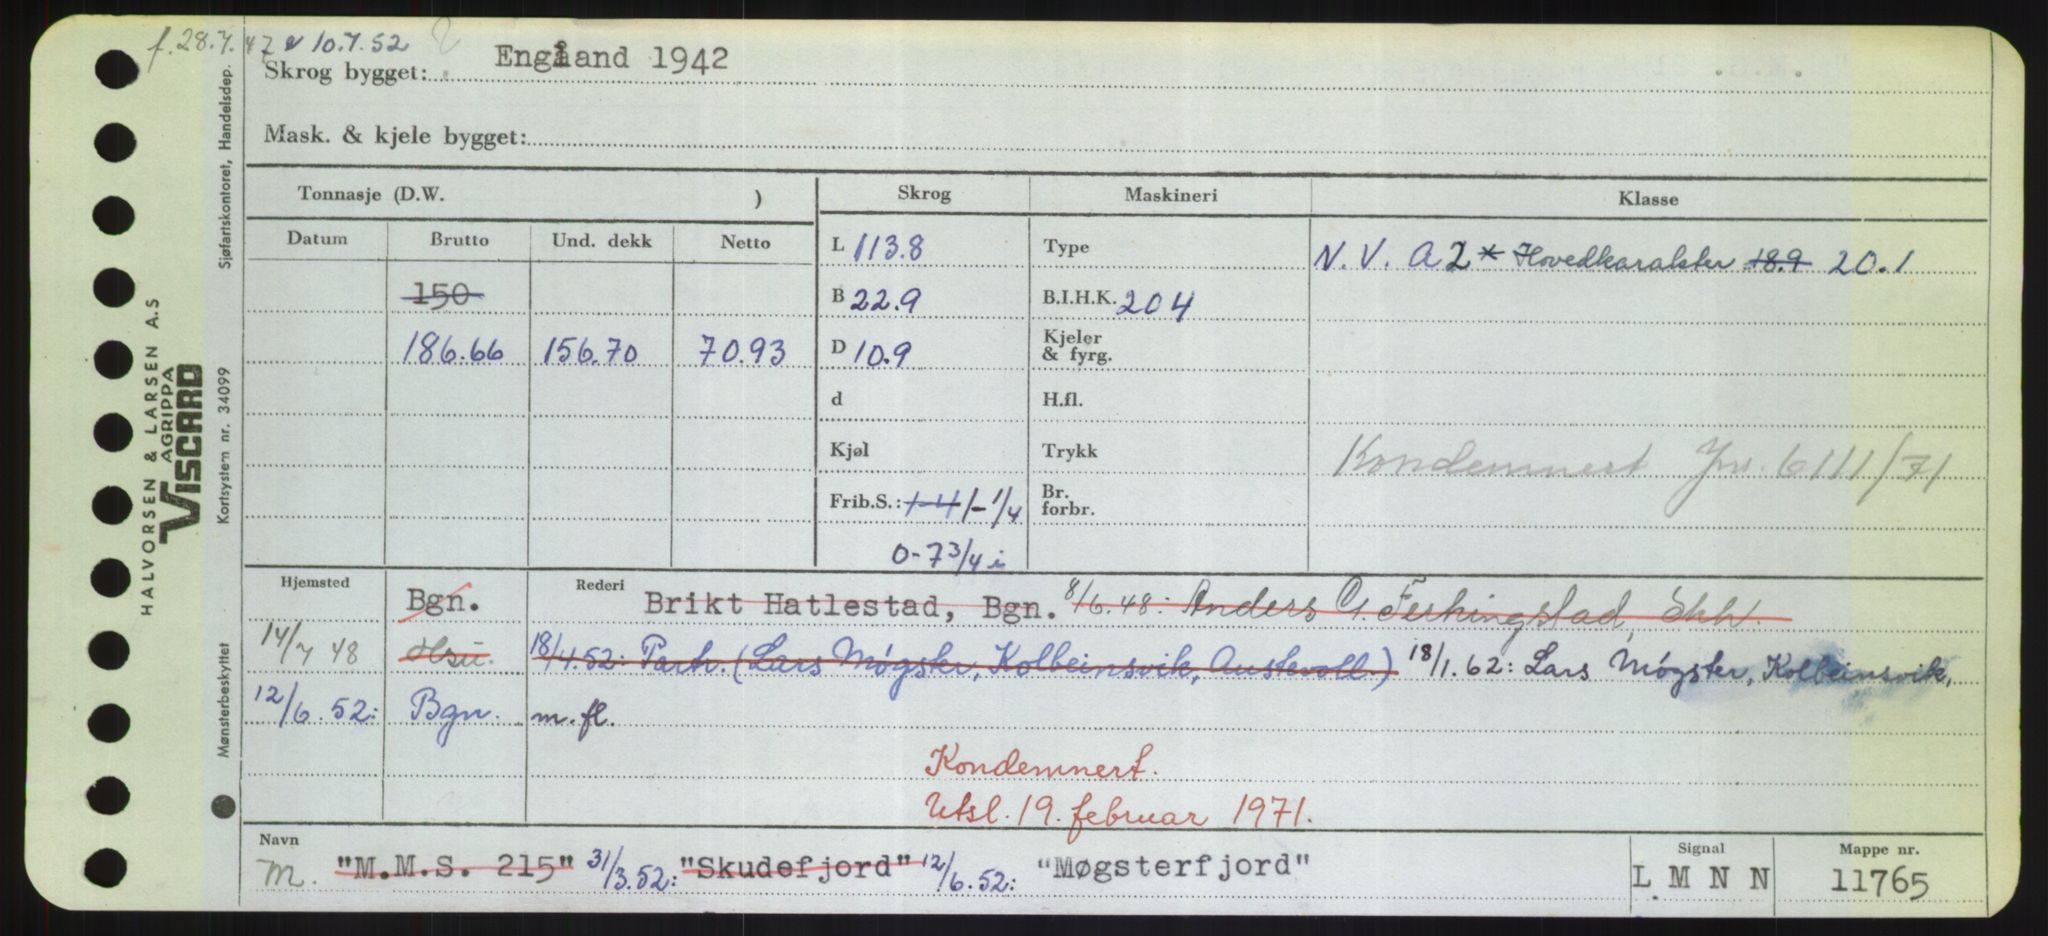 f. 28.7.47 & 10.7.52
Skrog bygget: England 1942
Mask. & kjele bygget:
Tonnasje (D.W. ) Skrog Maskineri Klasse
Datum Brutto Und. dekk Netto L 113.8 Type N.V. A 2 * Hovedkarakter 18.9 20.1
150 B 22.9 B.I.H.K. 204
186.66 156.70 70.93 D 10.9 Kjeler & fyrg.
d H.fl.
Kjøl Trykk Kondemnert Jnr. 6111/71
Frib.S.: 1-4 1-1/4 Br. forbr.
0-7 3/4 i
Hjemsted Bgn. Rederi Brikt Hatlestad, Bgn. 8/6.48: Anders C. Ferkingstad, Skh.
14/7 48 18/4.52: Partr. (Lars Møgster, Kolbeinsvik, Austevoll.) 18/1.62: Lars Møgster, Kolbeinsvik,
12/6.52: Bgn. m.fl.
Kondemnert.
Utsl. 19. februar 1971.
Navn Signal Mappe nr.
M. "M.M.S. 215" 31/3.52: "Skudefjord" 12/6.52: "Møgsterfjord" L M N N 11765
HALVORSEN & LARSEN A.S
AGRIPPA
VISCARD
Mønsterbeskyttet Kortsystem nr. 34099 Sjøfartskontoret, Handelsdep.